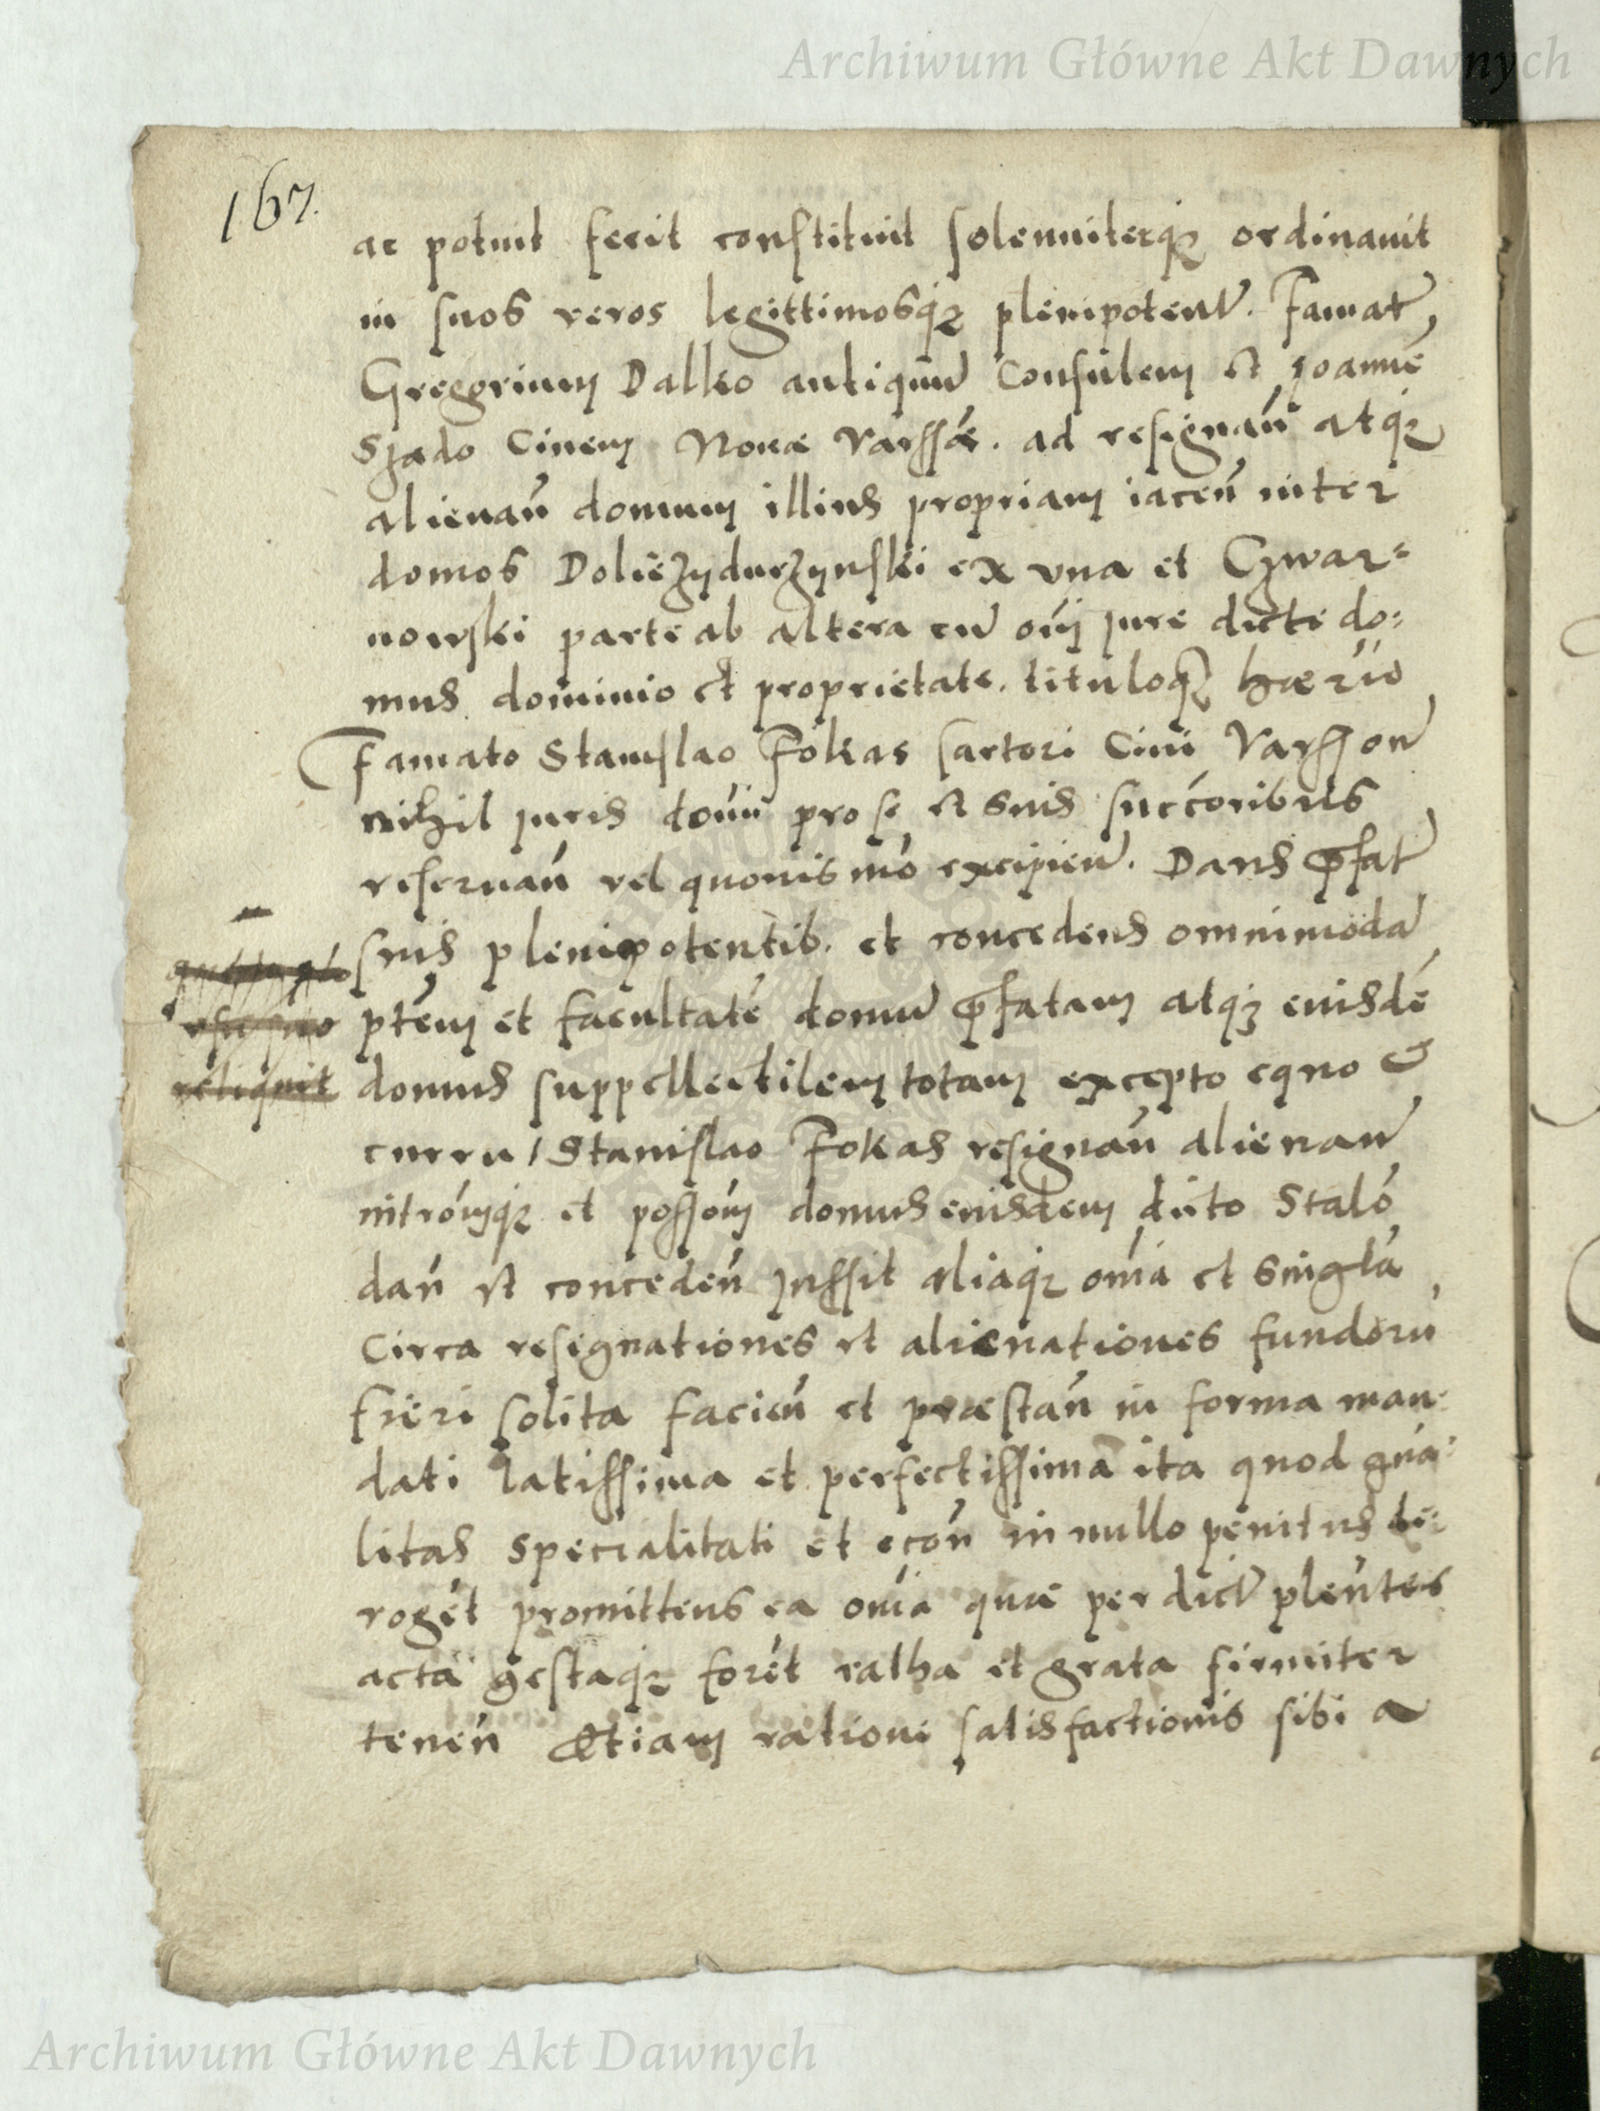 Archiwum Główne Akt Dawnych
167.
ac potuit fecit constituit solenniterq3 ordinauit
in suos veros legittimosq3 plenipoten̄. Famat̄
Gregorium Dalko antiquū Consulem et Joannē
Szado Ciuem Nouæ Varssæ. ad resignan̄ atq3
alienan̄ domum illius propriam iacen̄ inter
domos Doliężydurzynski ex vna et Czwar=
nowski parte ab altera cū om̄i jure dicte do=
mus dominio et proprietate. tituloq3
Famato Stanislao Fokas sartori Ciui Varsson̄
nihil juris pro se et suis succoribus
reseruan̄ vel quouis mō excipien̄. Dans p̄fat̄
suis plenipotentib. et concedens omnimodā
ptēm et facultatē domū p̄fatam atq3 eiusdē
reliquit
domus suppellectilem totam excepto equo &
curru / Stanislao Fokas resignan̄ alienan̄
intrōmq3 et possōm domus eiusdem dicto Stalo
dan̄ et conceden̄ jussit aliaq3 om̄ia et singla
Circa resignationes et alienationes fundorū
fieri solita facien̄ et præstan̄ in forma man=
dati latissima et perfectissima ita quod gn̄a=
litas specialitati et econ̄ in nullo penitus de=
roget promittens ea om̄ia quæ per dict̄ plen̄tes
acta gestaq3 foret ratha et grata firmiter
tenen̄ Etiam rationi satisfactionis sibi a
Archiwum Główne Akt Dawnych